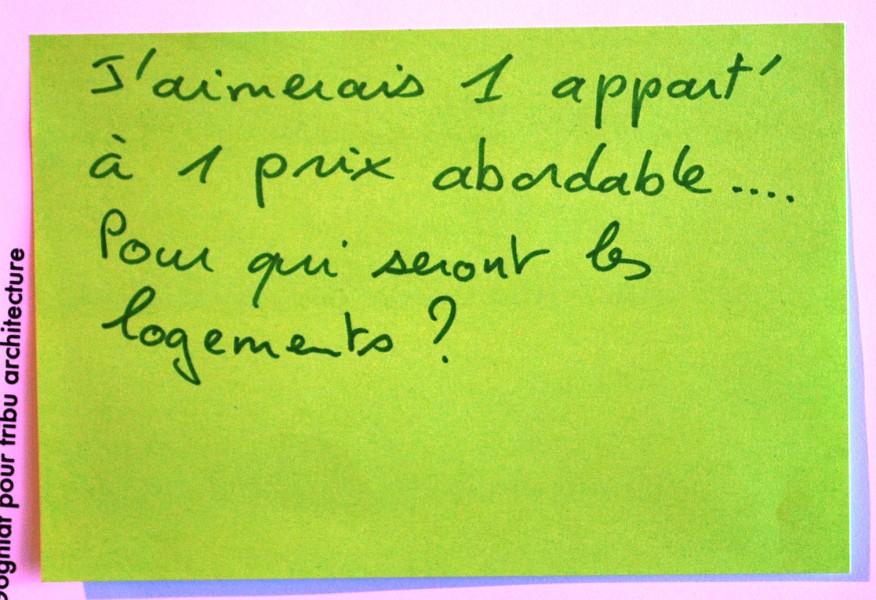 J'aimerais 1 appart'
à 1 prix abordable....
Pour qui seront les
logements ?
pour tribu architecture